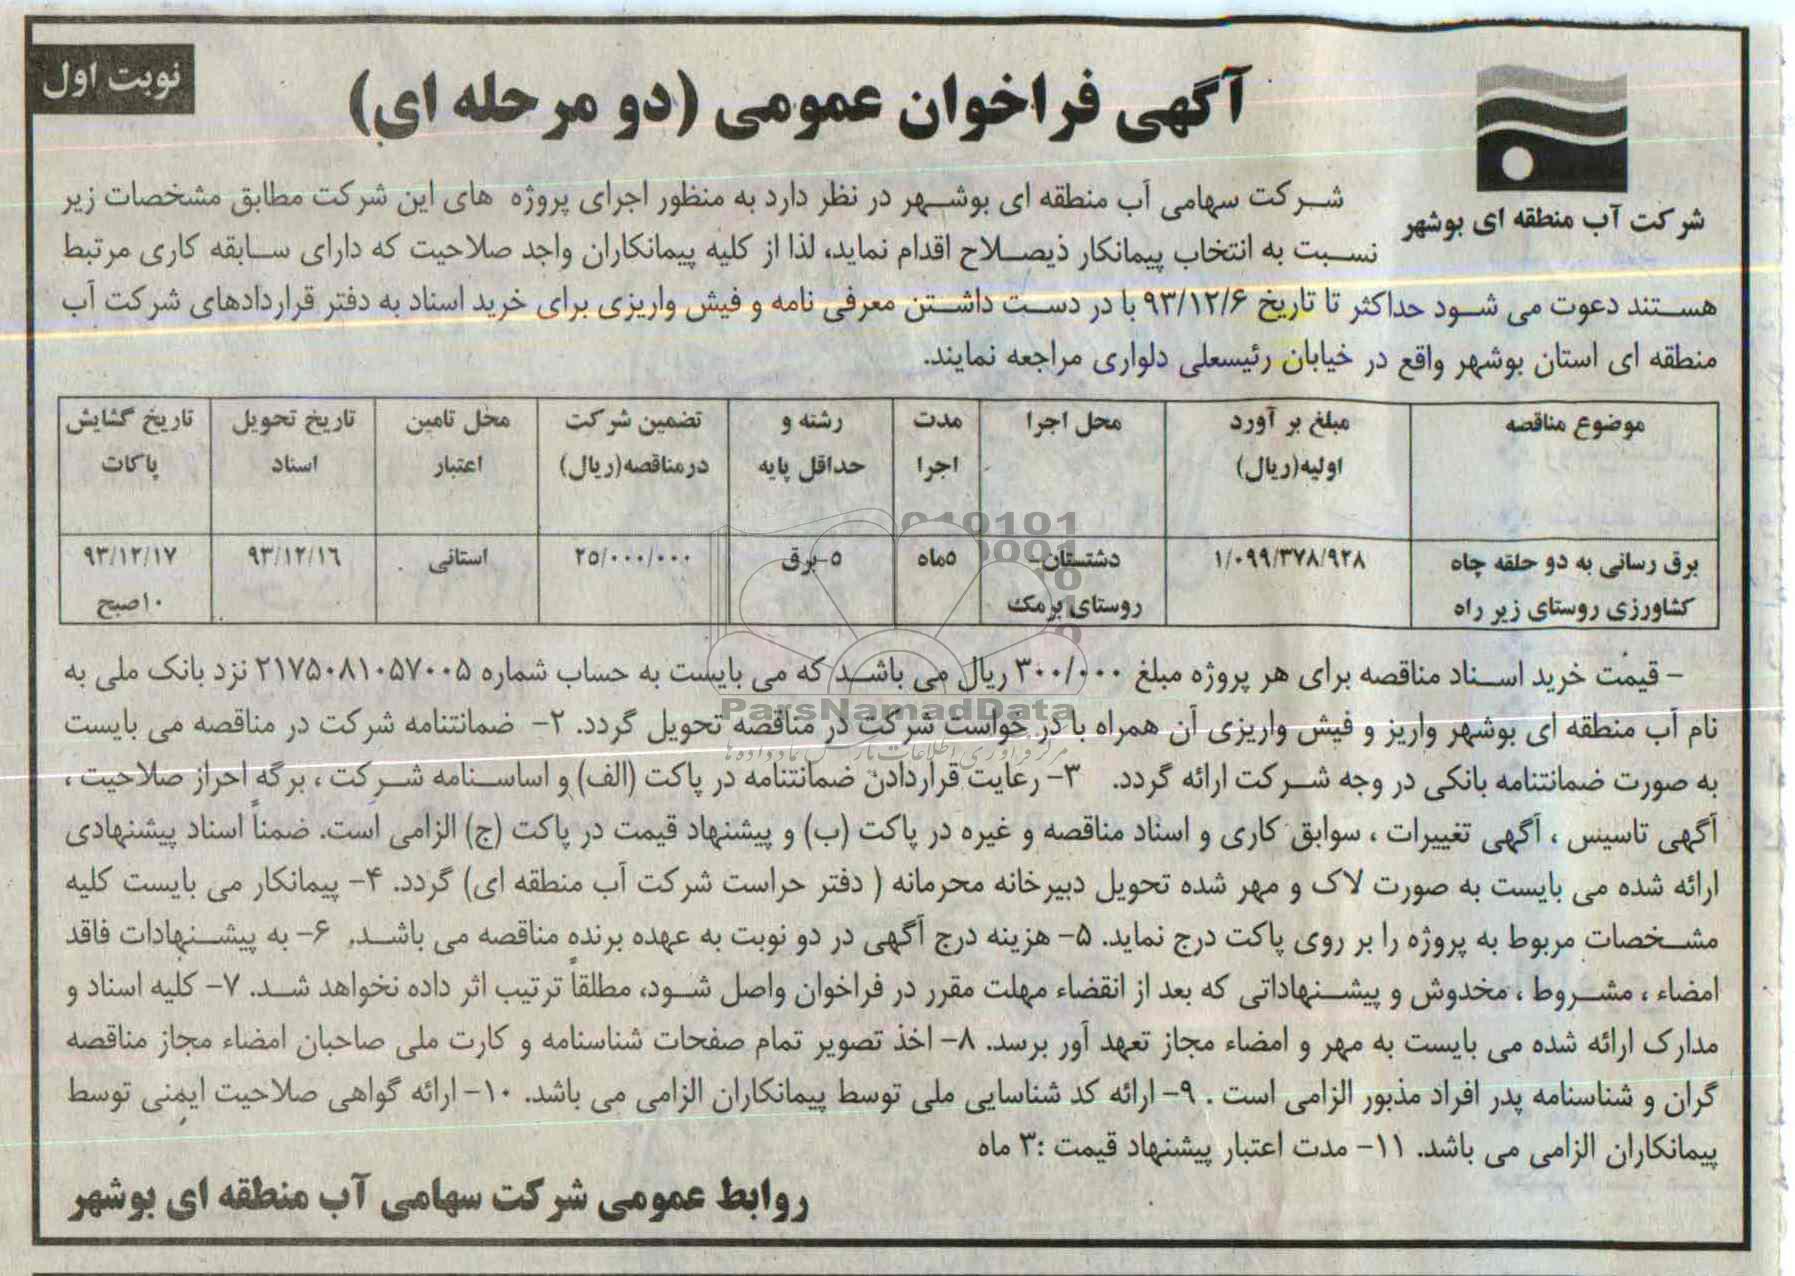 نوبت اول
آگهی فراخوان عمومی (دو مرحله ای)
شرکت آب منطقه ای بوشهر
شرکت سهامی آب منطقه ای بوشهر در نظر دارد به منظور اجرای پروژه های این شرکت مطابق مشخصات زیر
نسبت به انتخاب پیمانکار ذیصلاح اقدام نماید، لذا از کلیه پیمانکاران واجد صلاحیت که دارای سابقه کاری مرتبط
هستند دعوت می شود حداکثر تا تاریخ ۹۳/۱۲/۶ با در دست داشتن معرفی نامه و فیش واریزی برای خرید اسناد به دفتر قراردادهای شرکت آب
منطقه ای استان بوشهر واقع در خیابان رئیسعلی دلواری مراجعه نمایند.
موضوع مناقصه
مبلغ بر آورد
اولیه(ریال)
محل اجرا
مدت
اجرا
رشته و
حداقل پایه
تضمین شرکت
درمناقصه(ریال)
محل تامین
اعتبار
تاریخ تحویل
اسناد
تاریخ گشایش
پاکات
برق رسانی به دو حلقه چاه
کشاورزی روستای زیر راه
۱/۰۹۹/۳۷۸/۹۲۸
دشتستان-
روستای برمک
۵ماه
۵-برق
۲۵/۰۰۰/۰۰۰
استانی
۹۳/۱۲/۱۶
۹۳/۱۲/۱۷
۱۰صبح
- قیمت خرید اسناد مناقصه برای هر پروژه مبلغ ۳۰۰/۰۰۰ ریال می باشد که می بایست به حساب شماره ۲۱۷۵۰۸۱۰۵۷۰۰۵ نزد بانک ملی به
نام آب منطقه ای بوشهر واریز و فیش واریزی آن همراه با در خواست شرکت در مناقصه تحویل گردد. ۲- ضمانتنامه شرکت در مناقصه می بایست
به صورت ضمانتنامه بانکی در وجه شرکت ارائه گردد. ۳- رعایت قراردادن ضمانتنامه در پاکت (الف) و اساسنامه شرکت ، برگه احراز صلاحیت ،
آگهی تاسیس ، آگهی تغییرات ، سوابق کاری و اسناد مناقصه و غیره در پاکت (ب) و پیشنهاد قیمت در پاکت (ج) الزامی است. ضمناً اسناد پیشنهادی
ارائه شده می بایست به صورت لاک و مهر شده تحویل دبیرخانه محرمانه ( دفتر حراست شرکت آب منطقه ای) گردد. ۴- پیمانکار می بایست کلیه
مشخصات مربوط به پروژه را بر روی پاکت درج نماید. ۵- هزینه درج آگهی در دو نوبت به عهده برنده مناقصه می باشد. ۶- به پیشنهادات فاقد
امضاء ، مشروط ، مخدوش و پیشنهاداتی که بعد از انقضاء مهلت مقرر در فراخوان واصل شود، مطلقاً ترتیب اثر داده نخواهد شد. ۷- کلیه اسناد و
مدارک ارائه شده می بایست به مهر و امضاء مجاز تعهد آور برسد. ۸- اخذ تصویر تمام صفحات شناسنامه و کارت ملی صاحبان امضاء مجاز مناقصه
گران و شناسنامه پدر افراد مذبور الزامی است . ۹- ارائه کد شناسایی ملی توسط پیمانکاران الزامی می باشد. ۱۰- ارائه گواهی صلاحیت ایمنی توسط
پیمانکاران الزامی می باشد. ۱۱- مدت اعتبار پیشنهاد قیمت :۳ ماه
روابط عمومی شرکت سهامی آب منطقه ای بوشهر
ParsNamadData